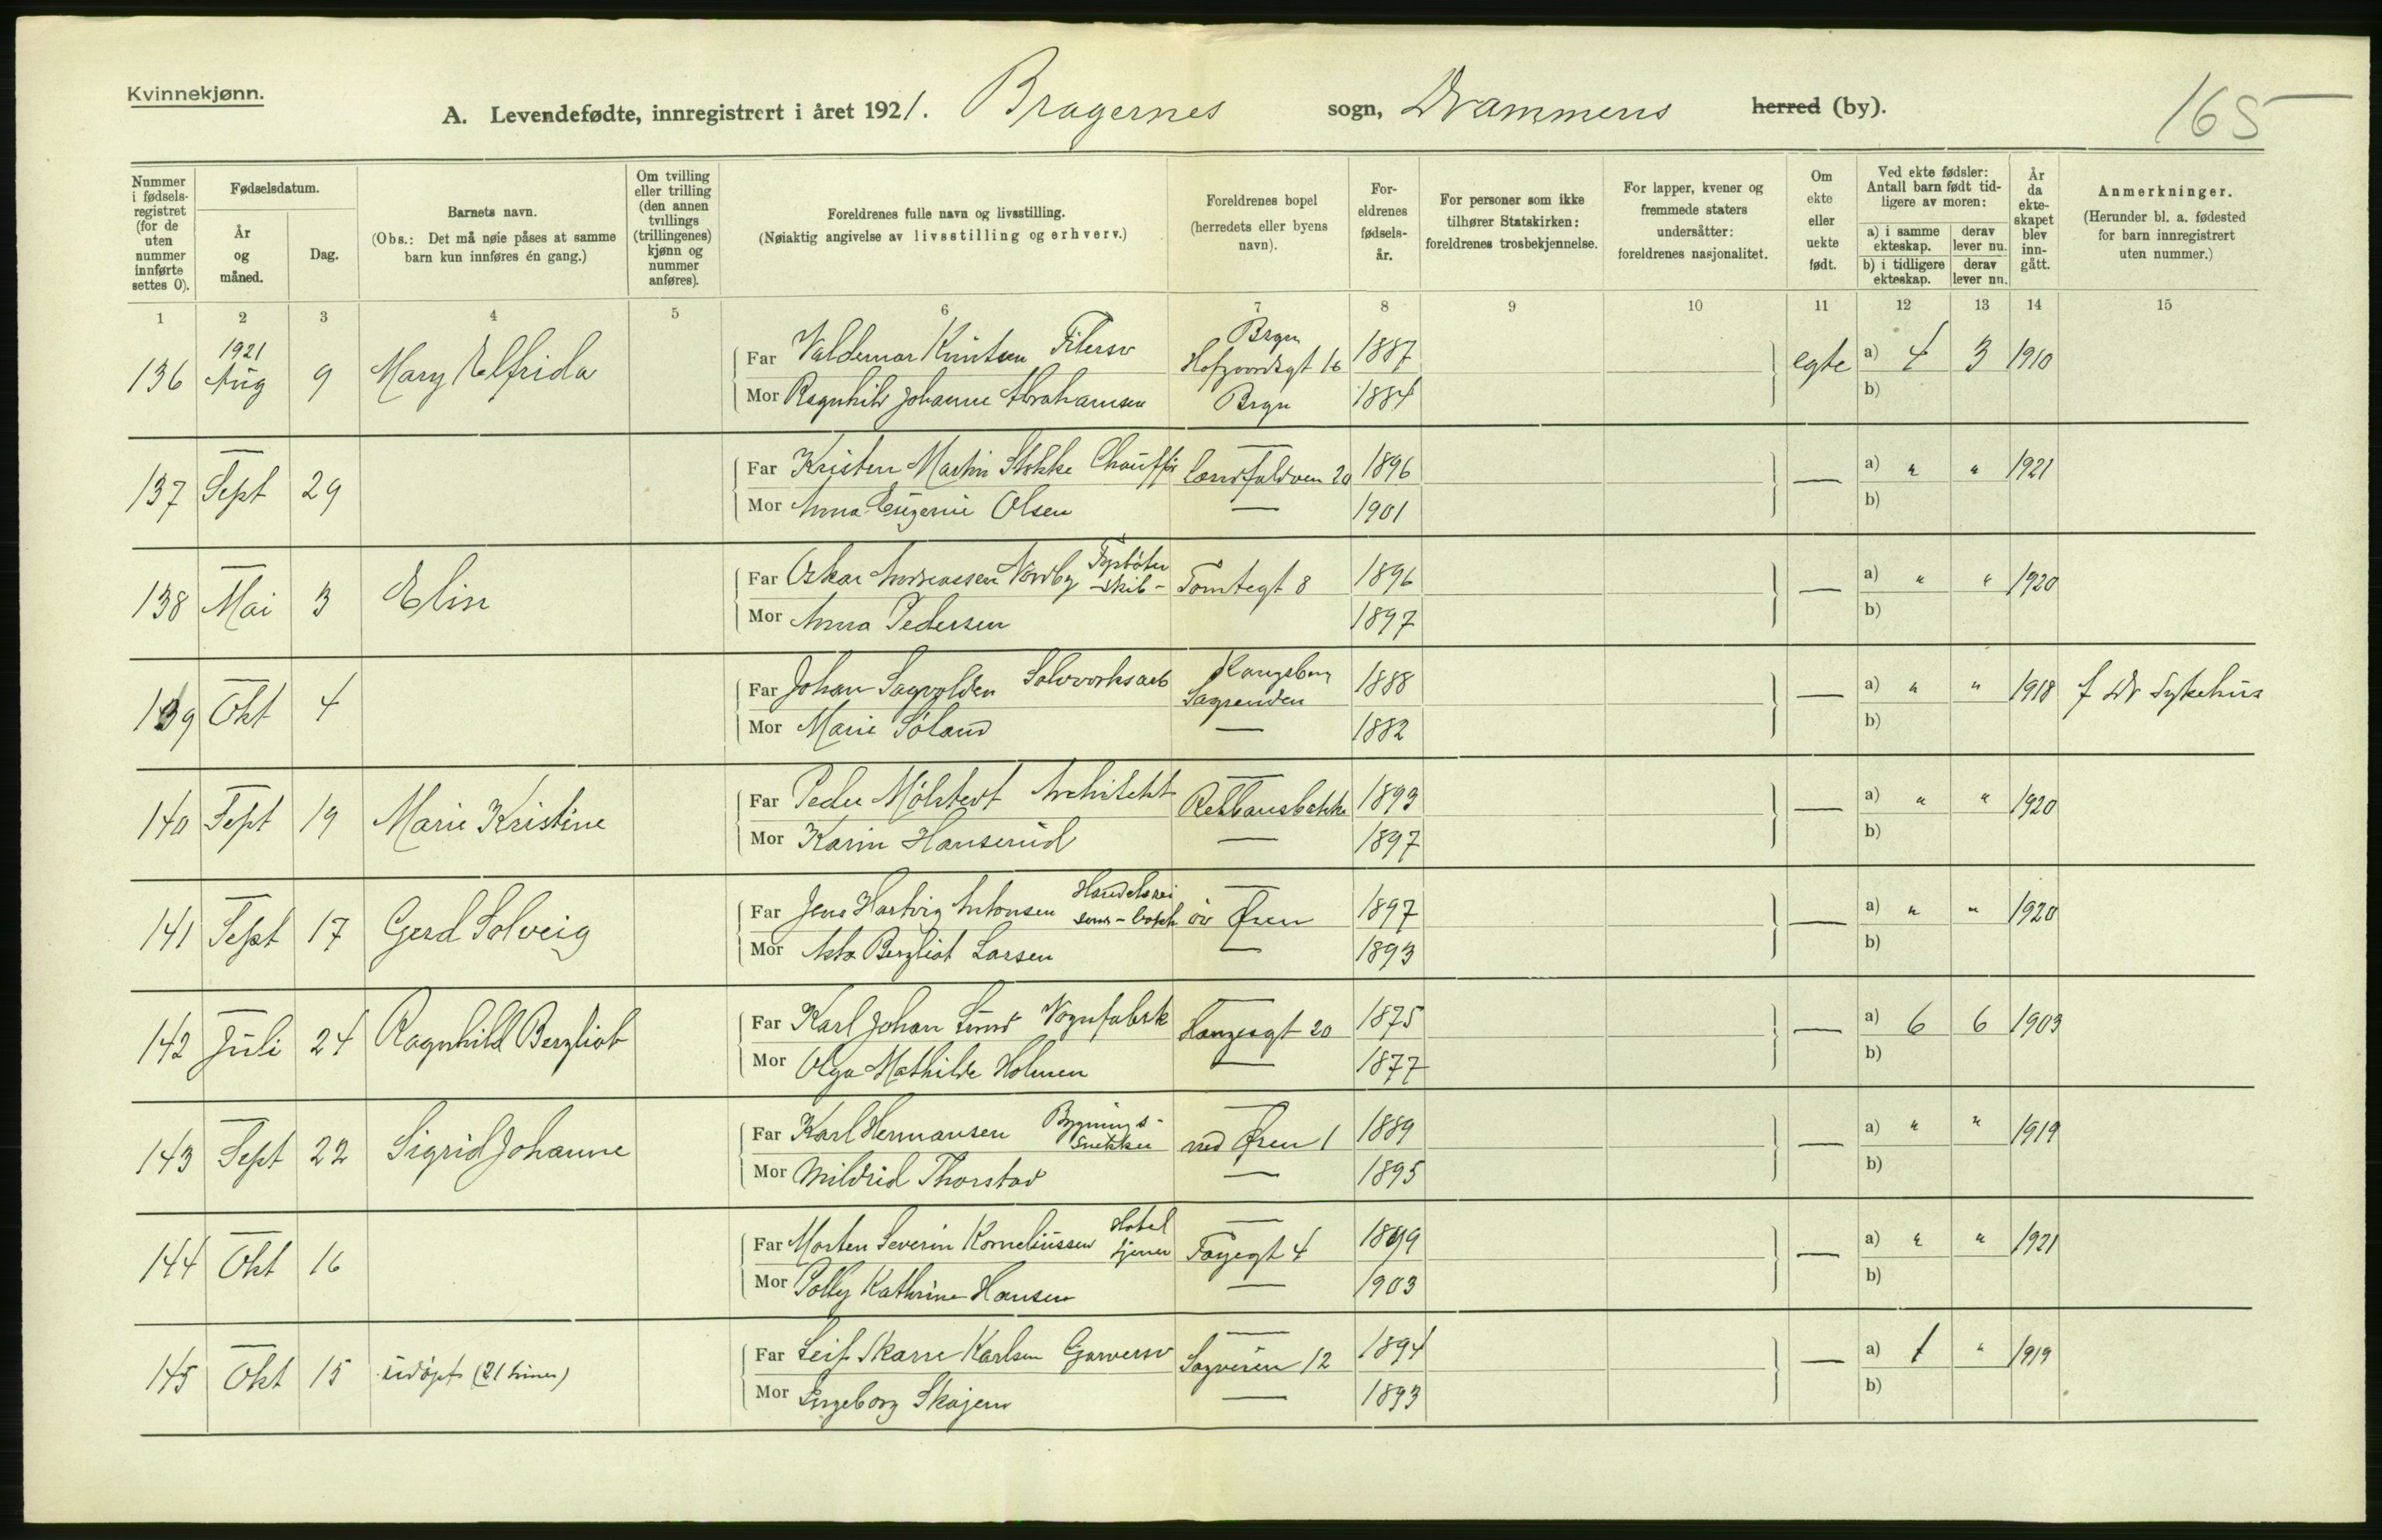 Kvinnekjønn.
A. Levendefødte, innregistrert i året 1921. Bragernes sogn, Drammens herred (by).
165
Nummer i fødsels-registret (for de uten nummer innførte settes 0).
Fødselsdatum.
År og måned.
Dag.
Barnets navn.
(Obs.: Det må nøie påses at samme barn kun innføres én gang.)
Om tvilling eller trilling (den annen tvillings (trillingenes) kjønn og nummer anføres).
Foreldrenes fulle navn og livsstilling.
(Nøiaktig angivelse av livsstilling og erhverv.)
Foreldrenes bopel
(herredets eller byens navn).
For-eldrenes fødsels-år.
For personer som ikke tilhører Statskirken: foreldrenes trosbekjennelse.
For lapper, kvener og fremmede staters undersåtter: foreldrenes nasjonalitet.
Om ekte eller uekte født.
Ved ekte fødsler: Antall barn født tid-ligere av moren:
a) i samme ekteskap. derav lever nu.
b) i tidligere ekteskap. derav lever nu.
År da ekte-skapet blev inn-gått.
Anmerkninger.
(Herunder bl. a. fødested for barn innregistrert uten nummer.)
1 2 3 4 5 6 7 8 9 10 11 12 13 14 15
136 1921 Aug 9 Mary Elfrida
Far Valdemar Knutsen Filersv Brgn Hofgaardsgt 16 1887 egte a) 4 3 1910
Mor Ragnhild Johanne Abrahamsen Brgn 1884 b)
137 — Sept 29
Far Kristen Martin Stokke Chauffør — Landfaldven 20 1896 — a) " " 1921
Mor Anna Eugenie Olsen — 1901 b)
138 — Mai 3 Elin
Far Oskar Andreassen Nordby Fyrbøter skib- Tomtegt 8 1896 — a) " " 1920
Mor Anna Pedersen 1897 b)
139 Okt 4
Far Johan Sagvolden Sølvverksarb Kongsberg Sagrenden 1888 — a) " " 1918 f Dr Sykehus
Mor Marie Søland — 1882 b)
140 — Sept 19 Marie Kristine
Far Peder Mølstedt Architekt — 1893 — a) " " 1920
Mor Karin Hanserud — 1897 b)
141 — Sept 17 Gerd Solveig
Far Jens Hartvig Antonsen Handelsrei sende — øv Øren 1897 — a) " " 1920
Mor Asta Bergliot Larsen — 1893 b)
142 — Juli 24 Ragnhild Bergliot
Far Karl Johan Vognfabrk — Haugesgt 20 1875 — a) 6 6 1903
Mor Olga Mathilde Holmen — 1877 b)
143 — Sept 22 Sigrid Johanne
Far Karl Hermansen Bygnings-snekker — ned Øren 1 1889 — a) " " 1919
Mor Mildrid Thorstad — 1895 b)
144 — Okt 16
Far Morten Severin Korneliussen Hotel tjener — Tollbugt 4 1899 — a) " " 1921
Mor Polly Kathrine Hansen — 1903 b)
145 — Okt 15 udøpt (21 timer)
Far Leif Skarre Karlsen Garversv — Sagveien 12 1894 — a) 1 " 1919
Mor Ingeborg Skajem — 1893 b)